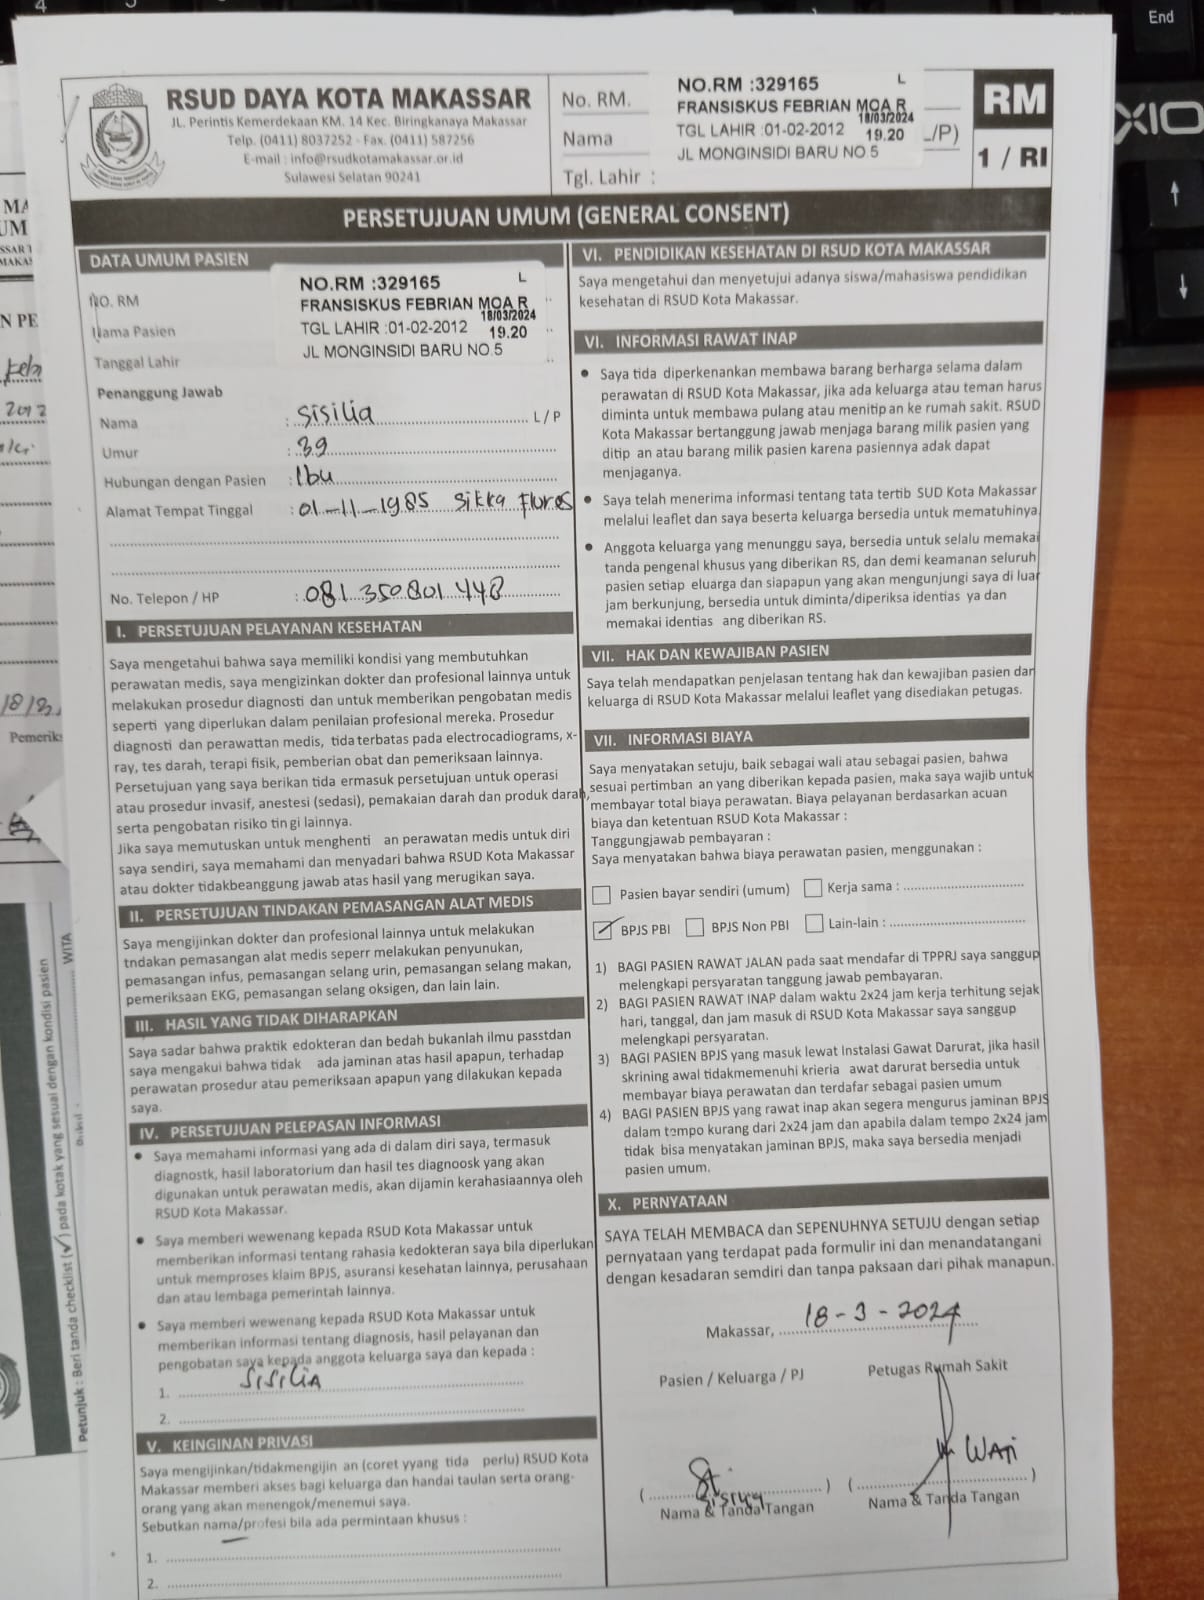 RSUD DAYA KOTA MAKASSAR
JL. Perintis Kemerdekaan KM. 14 Kec. Biringkanaya Makassar
Telp. (0411) 8037252 - Fax. (0411) 587256
E-mail : info@rsudkotamakassar.or.id
Sulawesi Selatan 90241
No. RM.
Nama
Tgl. Lahir :
NO.RM :329165 L
FRANSISKUS FEBRIAN MOA R
18/03/2024
TGL LAHIR :01-02-2012 19.20
JL MONGINSIDI BARU NO.5
L/P)
RM
1 / RI
PERSETUJUAN UMUM (GENERAL CONSENT)
DATA UMUM PASIEN
NO. RM
Nama Pasien
Tanggal Lahir
NO.RM :329165 L
FRANSISKUS FEBRIAN MOA R
18/03/2024
TGL LAHIR :01-02-2012 19.20
JL MONGINSIDI BARU NO.5
Penanggung Jawab
Nama : Sisilia L / P
Umur : 39
Hubungan dengan Pasien : Ibu
Alamat Tempat Tinggal : 01-11-1985 Sikka Flores
No. Telepon / HP : 081 350 801 448
I. PERSETUJUAN PELAYANAN KESEHATAN
Saya mengetahui bahwa saya memiliki kondisi yang membutuhkan
perawatan medis, saya mengizinkan dokter dan profesional lainnya untuk
melakukan prosedur diagnosti dan untuk memberikan pengobatan medis
seperti yang diperlukan dalam penilaian profesional mereka. Prosedur
diagnosti dan perawattan medis, tida terbatas pada electrocadiograms, x-
ray, tes darah, terapi fisik, pemberian obat dan pemeriksaan lainnya.
Persetujuan yang saya berikan tida ermasuk persetujuan untuk operasi
atau prosedur invasif, anestesi (sedasi), pemakaian darah dan produk darah,
serta pengobatan risiko tin gi lainnya.
Jika saya memutuskan untuk menghenti an perawatan medis untuk diri
saya sendiri, saya memahami dan menyadari bahwa RSUD Kota Makassar
atau dokter tidakbeanggung jawab atas hasil yang merugikan saya.
II. PERSETUJUAN TINDAKAN PEMASANGAN ALAT MEDIS
Saya mengijinkan dokter dan profesional lainnya untuk melakukan
tndakan pemasangan alat medis seperr melakukan penyunukan,
pemasangan infus, pemasangan selang urin, pemasangan selang makan,
pemeriksaan EKG, pemasangan selang oksigen, dan lain lain.
III. HASIL YANG TIDAK DIHARAPKAN
Saya sadar bahwa praktik edokteran dan bedah bukanlah ilmu passtdan
saya mengakui bahwa tidak ada jaminan atas hasil apapun, terhadap
perawatan prosedur atau pemeriksaan apapun yang dilakukan kepada
saya.
IV. PERSETUJUAN PELEPASAN INFORMASI
• Saya memahami informasi yang ada di dalam diri saya, termasuk
diagnostk, hasil laboratorium dan hasil tes diagnoosk yang akan
digunakan untuk perawatan medis, akan dijamin kerahasiaannya oleh
RSUD Kota Makassar.
• Saya memberi wewenang kepada RSUD Kota Makassar untuk
memberikan informasi tentang rahasia kedokteran saya bila diperlukan
untuk memproses klaim BPJS, asuransi kesehatan lainnya, perusahaan
dan atau lembaga pemerintah lainnya.
• Saya memberi wewenang kepada RSUD Kota Makassar untuk
memberikan informasi tentang diagnosis, hasil pelayanan dan
pengobatan saya kepada anggota keluarga saya dan kepada :
1. SISILIA
2.
V. KEINGINAN PRIVASI
Saya mengijinkan/tidakmengijin an (coret yyang tida perlu) RSUD Kota
Makassar memberi akses bagi keluarga dan handai taulan serta orang-
orang yang akan menengok/menemui saya.
Sebutkan nama/profesi bila ada permintaan khusus :
1.
2.
VI. PENDIDIKAN KESEHATAN DI RSUD KOTA MAKASSAR
Saya mengetahui dan menyetujui adanya siswa/mahasiswa pendidikan
kesehatan di RSUD Kota Makassar.
VI. INFORMASI RAWAT INAP
• Saya tida diperkenankan membawa barang berharga selama dalam
perawatan di RSUD Kota Makassar, jika ada keluarga atau teman harus
diminta untuk membawa pulang atau menitip an ke rumah sakit. RSUD
Kota Makassar bertanggung jawab menjaga barang milik pasien yang
ditip an atau barang milik pasien karena pasiennya adak dapat
menjaganya.
• Saya telah menerima informasi tentang tata tertib SUD Kota Makassar
melalui leaflet dan saya beserta keluarga bersedia untuk mematuhinya.
• Anggota keluarga yang menunggu saya, bersedia untuk selalu memakai
tanda pengenal khusus yang diberikan RS, dan demi keamanan seluruh
pasien setiap eluarga dan siapapun yang akan mengunjungi saya di luar
jam berkunjung, bersedia untuk diminta/diperiksa identias ya dan
memakai identias ang diberikan RS.
VII. HAK DAN KEWAJIBAN PASIEN
Saya telah mendapatkan penjelasan tentang hak dan kewajiban pasien dar
keluarga di RSUD Kota Makassar melalui leaflet yang disediakan petugas.
VII. INFORMASI BIAYA
Saya menyatakan setuju, baik sebagai wali atau sebagai pasien, bahwa
sesuai pertimban an yang diberikan kepada pasien, maka saya wajib untuk
membayar total biaya perawatan. Biaya pelayanan berdasarkan acuan
biaya dan ketentuan RSUD Kota Makassar :
Tanggungjawab pembayaran :
Saya menyatakan bahwa biaya perawatan pasien, menggunakan :
Pasien bayar sendiri (umum) Kerja sama :
BPJS PBI BPJS Non PBI Lain-lain :
1) BAGI PASIEN RAWAT JALAN pada saat mendafar di TPPRJ saya sanggup
melengkapi persyaratan tanggung jawab pembayaran.
2) BAGI PASIEN RAWAT INAP dalam waktu 2x24 jam kerja terhitung sejak
hari, tanggal, dan jam masuk di RSUD Kota Makassar saya sanggup
melengkapi persyaratan.
3) BAGI PASIEN BPJS yang masuk lewat Instalasi Gawat Darurat, jika hasil
skrining awal tidakmemenuhi krieria awat darurat bersedia untuk
membayar biaya perawatan dan terdafar sebagai pasien umum
4) BAGI PASIEN BPJS yang rawat inap akan segera mengurus jaminan BPJS
dalam tempo kurang dari 2x24 jam dan apabila dalam tempo 2x24 jam
tidak bisa menyatakan jaminan BPJS, maka saya bersedia menjadi
pasien umum.
X. PERNYATAAN
SAYA TELAH MEMBACA dan SEPENUHNYA SETUJU dengan setiap
pernyataan yang terdapat pada formulir ini dan menandatangani
dengan kesadaran semdiri dan tanpa paksaan dari pihak manapun.
Makassar, 18-3-2024
Pasien / Keluarga / PJ Petugas Rumah Sakit
WATI
Nama & Tanda Tangan Nama & Tanda Tangan
Petunjuk : Beri tanda checklist (✓) pada kotak yang sesuai dengan kondisi pasien
WITA
End